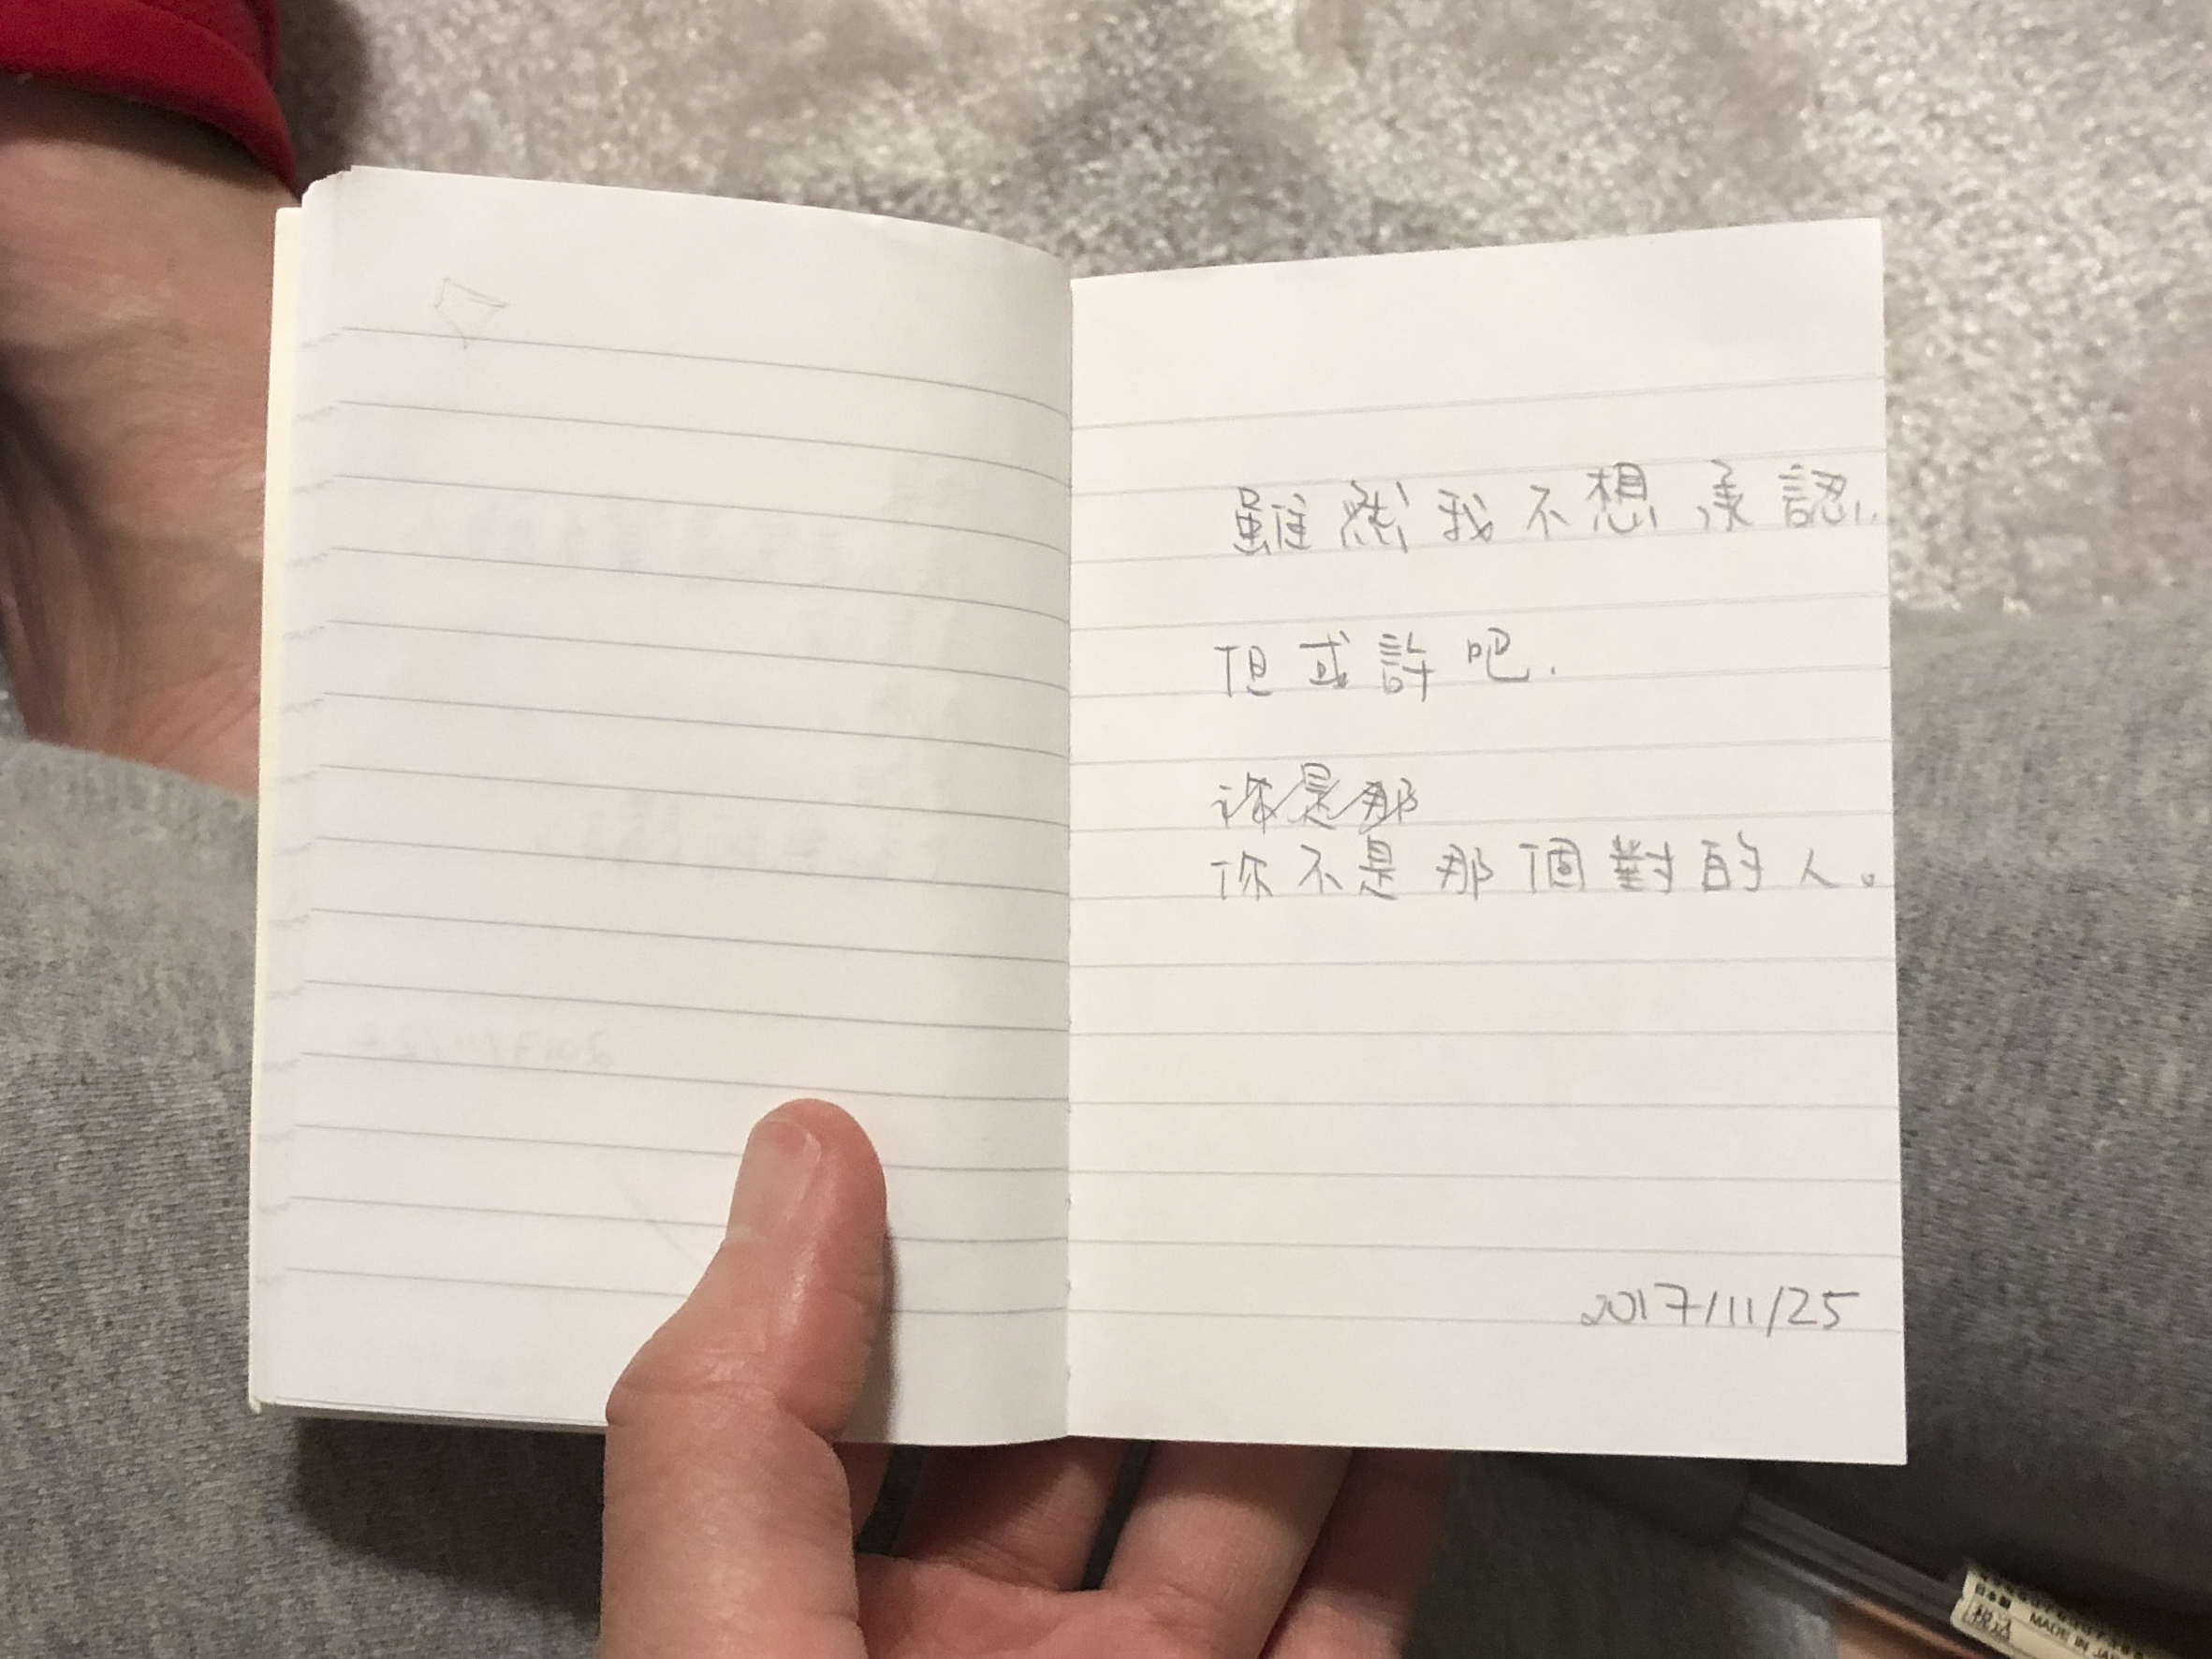 雖然我不想承認,
但或許吧.
你是那
你不是那個對的人。
2017/11/25
日本製 MADE IN JAPAN
税込